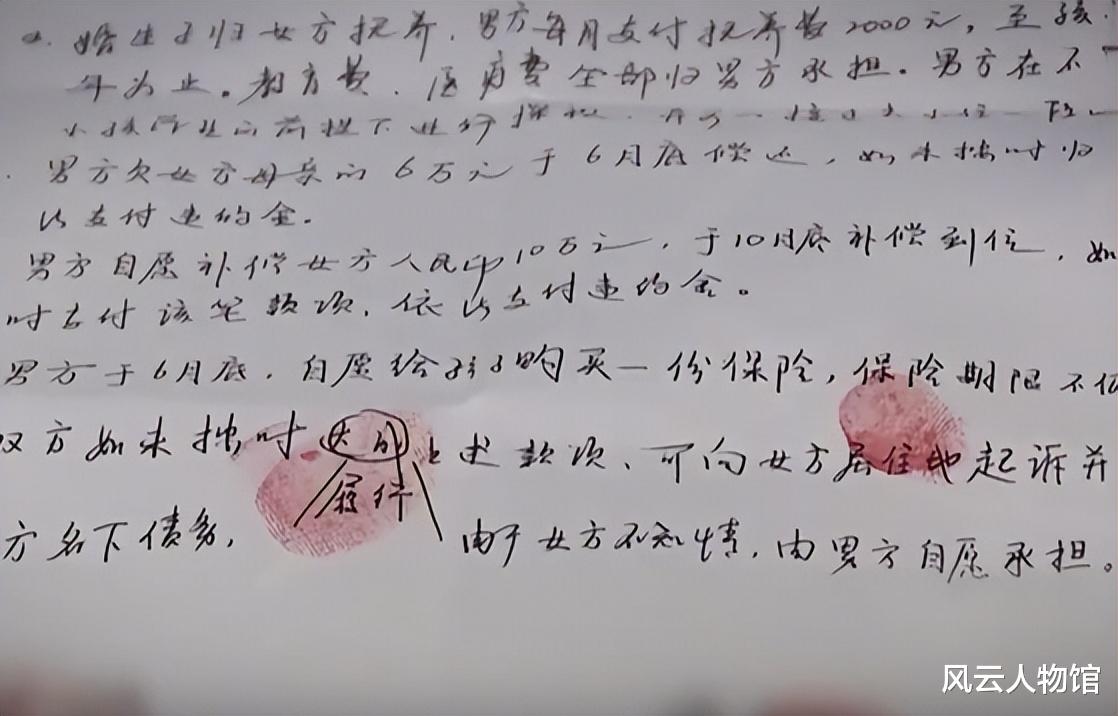 2. 婚生子归女方抚养,男方每月支付抚养费2000元,至孩
年为止。教育费、医疗费全部归男方承担。男方在不
的前提下进行探视
男方欠女方母亲的6万元于6月底偿还,如未按时归
以支付违约金。
男方自愿补偿女方人民币10万元,于10月底补偿到位,如
时支付该笔款项,依此支付违约金。
男方于6月底,自愿给孩子购买一份保险,保险期限不低
双方如未按时 上述款项、可向女方居住地起诉并
履行
方名下债务, 由于女方不知情,由男方自愿承担。
风云人物馆